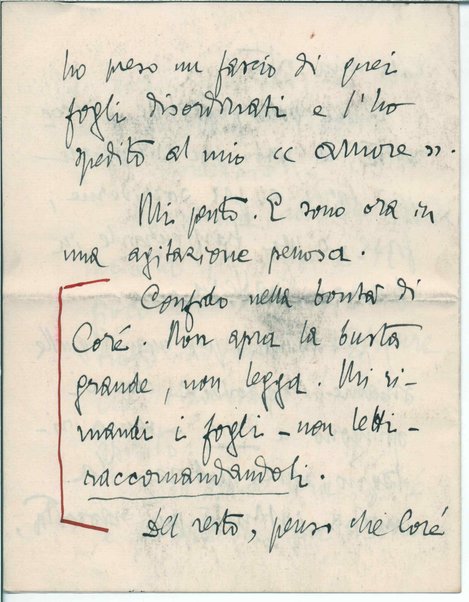 ho preso un fascio di quei
fogli disordinati e l'ho
spedito al mio << amore >>.
Mi pento. E sono ora in
una agitazione penosa.
Confido nella bontà di
Coré. Non apra la busta
grande, non legga. Mi ri-
mandi i fogli - non letti -
raccomandandoli.
Del resto, penso che Coré